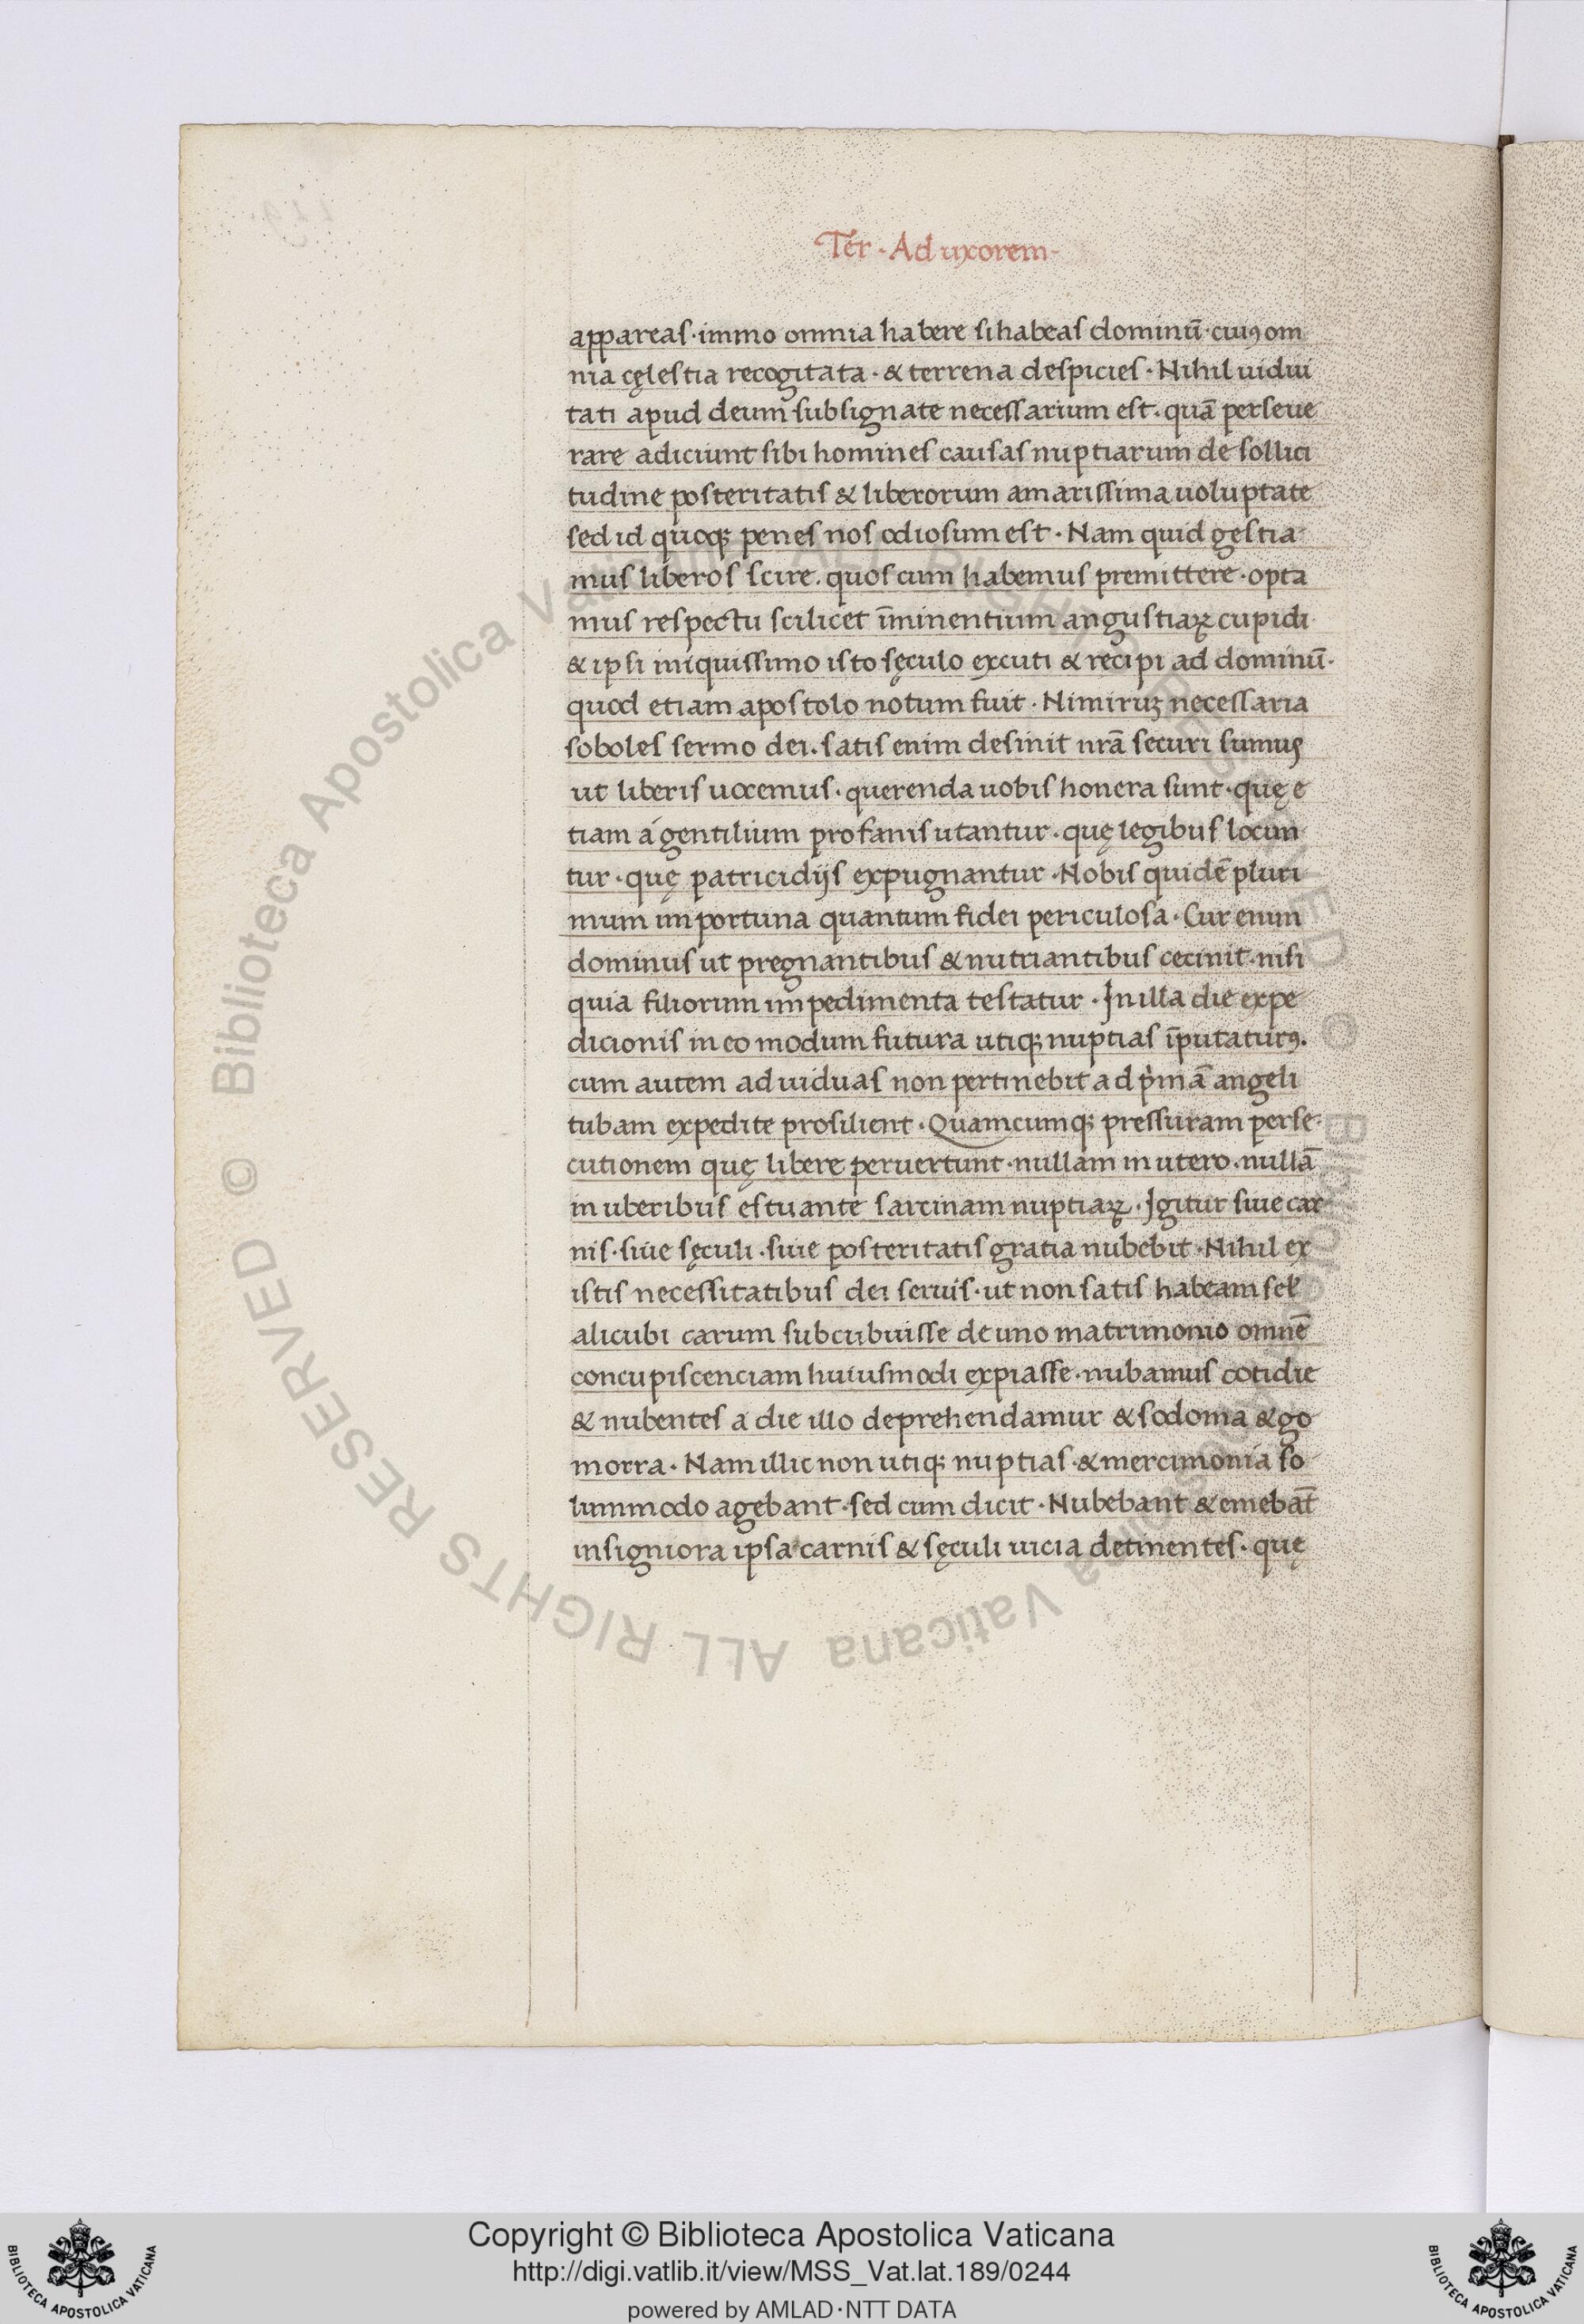 Ter · Ad uxorem ·
appareas · immo omnia habere si habeas dominū · cuiꝰ om
nia cęlestia recogitata · & terrena despicies · Nihil uidui
tati apud deum subsignate necessarium est · quā perseue
rare adiciunt sibi homines causas nuptiarum de sollici
tudine posteritatis & liberorum amarissima uoluptate
sed id quoqꝫ penes nos odiosum est · Nam quid gestia
mus liberos scire · quos cum habemus premittere · opta
mus respectu scilicet īminentium angustiaꝝ cupidi
& ipsi iniquissimo isto sęculo excuti & recipi ad dominū ·
quod etiam apostolo notum fuit · Nimiruꝫ necessaria
soboles sermo dei · satis enim desinit nrā securi sumus
ut liberis uocemus · querenda uobis honera sunt · quę e
tiam a gentilium profanis utantur · quę legibus locun
tur · quę patricidijs expugnantur · Nobis quidē pluri
mum importuna quantum fidei periculosa · Cur enim
dominus ut pregnantibus & nutriantibus cecinit · nisi
quia filiorum impedimenta testatur · In illa die expe
dicionis in eo modum futura utiqꝫ nuptias īputaturꝰ ·
cum autem ad uiduas non pertinebit ad pimā angeli
tubam expedite prosilient · Quamcumqꝫ pressuram perse
cutionem quę libere peruertunt · nullam in utero · nullā
in uberibus estuante sarcinam nuptiaꝝ · Igitur siue car
nis · siue sęculi · siue posteritatis gratia nubebit · Nihil ex
istis necessitatibus dei seruis · ut non satis habeam sel
alicubi carum subcubuisse de uno matrimonio omnē
concupiscenciam huiusmodi expiasse · nubamus cotidie
& nubentes a die illo deprehendamur & sodoma & go
morra · Nam illic non utiqꝫ nuptias · & mercimonia so
lummodo agebant · sed cum dicit · Nubebant & emebāt
insigniora ipsa carnis & sęculi uicia detinentes · quę
Copyright © Biblioteca Apostolica Vaticana
http://digi.vatlib.it/view/MSS_Vat.lat.189/0244
powered by AMLAD·NTT DATA